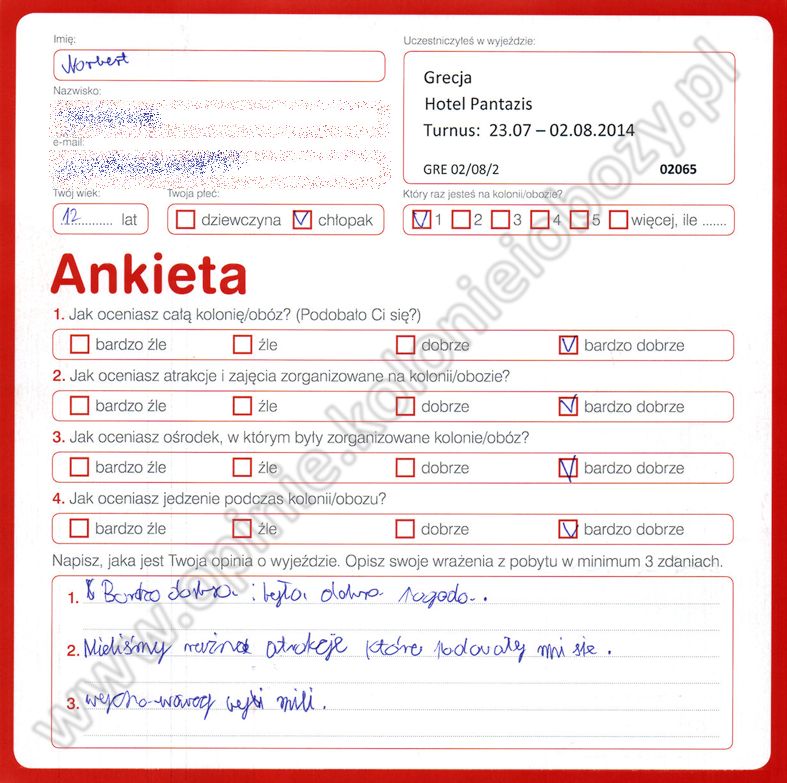 Imię:
Norbert
Uczestniczyłeś w wyjeździe:
Grecja
Hotel Pantazis
Turnus: 23.07 – 02.08.2014
GRE 02/08/2 02065
Nazwisko:
e-mail:
Twój wiek: Twoja płeć: Który raz jesteś na kolonii/obozie?
12 lat dziewczyna chłopak 1 2 3 4 5 więcej, ile .......
Ankieta
1. Jak oceniasz całą kolonię/obóz? (Podobało Ci się?)
bardzo źle źle dobrze bardzo dobrze
2. Jak oceniasz atrakcje i zajęcia zorganizowane na kolonii/obozie?
bardzo źle źle dobrze bardzo dobrze
3. Jak oceniasz ośrodek, w którym były zorganizowane kolonie/obóz?
bardzo źle źle dobrze bardzo dobrze
4. Jak oceniasz jedzenie podczas kolonii/obozu?
bardzo źle źle dobrze bardzo dobrze
Napisz, jaka jest Twoja opinia o wyjeździe. Opisz swoje wrażenia z pobytu w minimum 3 zdaniach.
1. Bardzo dobra i była dobra pogoda.
2. Mieliśmy różne atrakcje które podobały mi się.
3. byli mili.
www.opinie.kolonieiobozy.pl